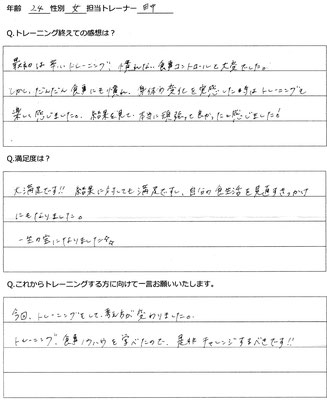 年齢 24 性別 女 担当トレーナー 田中
Q.トレーニング終えての感想は?
最初は辛いトレーニング、慣れない食事コントロールと大変でした。
しかし、だんだん食事にも慣れ、身体の変化を実感した時はトレーニングも
楽しく感じましたし、結果を見て、本当に頑張って良かったと感じました!
Q.満足度は?
大満足です!! 結果に対しても満足ですし、自分の食生活を見直すきっかけ
にもなりました。
一生の宝になりました
Q.これからトレーニングする方に向けて一言お願いいたします。
今回、トレーニングをして、考え方が変わりました。
トレーニング、食事 を学べたので、是非チャレンジするべきです!!